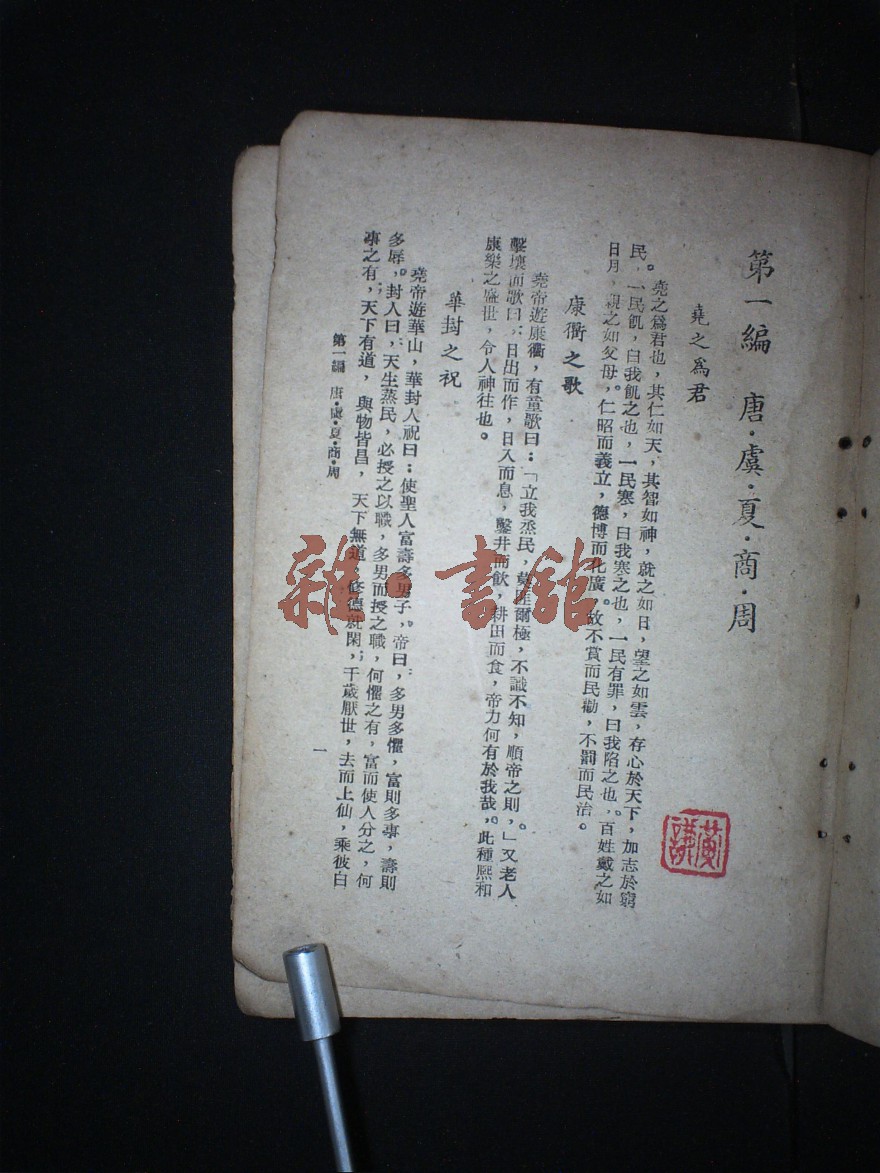 第一編　唐・虞・夏・商・周
堯之爲君
堯之爲君也，其仁如天，其智如神，就之如日，望之如雲，存心於天下，加志於窮
民。一民飢，曰我飢之也，一民寒，曰我寒之也，一民有罪，曰我陷之也。百姓戴之如
日月，親之如父母。仁昭而義立，德博而化廣。故不賞而民勸，不罰而民治。
康衢之歌
堯帝遊康衢，有童歌曰：「立我烝民，莫匪爾極，不識不知，順帝之則，」又老人
擊壤而歌曰：日出而作，日入而息，鑿井而飲，耕田而食，帝力何有於我哉。此種熙和
康樂之盛世，令人神往也。
華封之祝
堯帝遊華山，華封人祝曰：使聖人富壽多男子。帝曰：多男多懼，富則多事，壽則
多辱。封人曰：天生蒸民，必授之以職，多男而授之職，何懼之有，富而使人分之，何
事之有，天下有道，與物皆昌，天下無道，修德就閑；千歲厭世，去而上仙，乘彼白
第一編　唐・虞・夏・商・周
一
雜・書館
黃